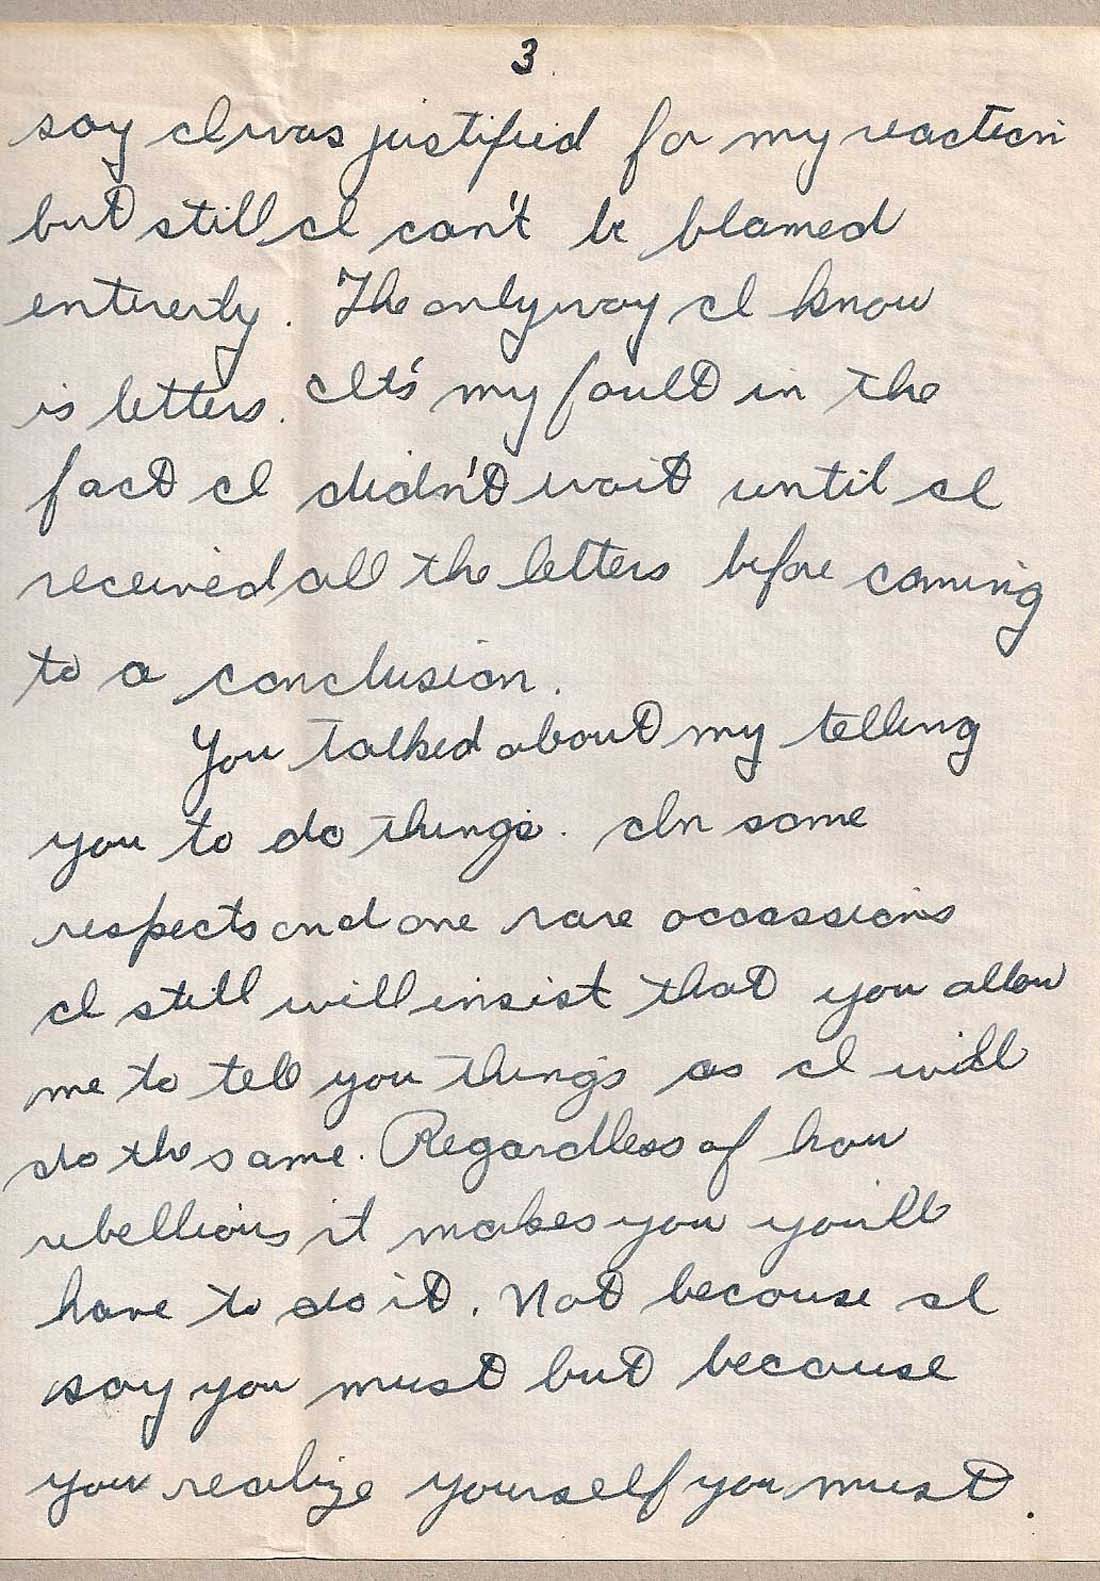 3
say I was justified for my reaction
but still I can't be blamed
entirerly. The only way I know
is letters. It's my fault in the
fact I didn't wait until I
received all the letters before coming
to a conclusion.
You talked about my telling
you to do things. In some
respects and one rare occassions
I still will insist that you allow
me to tell you things as I will
do the same. Regardless of how
rebellious it makes you you'll
have to do it. Not because I
say you must but because
you realize yourself you must.